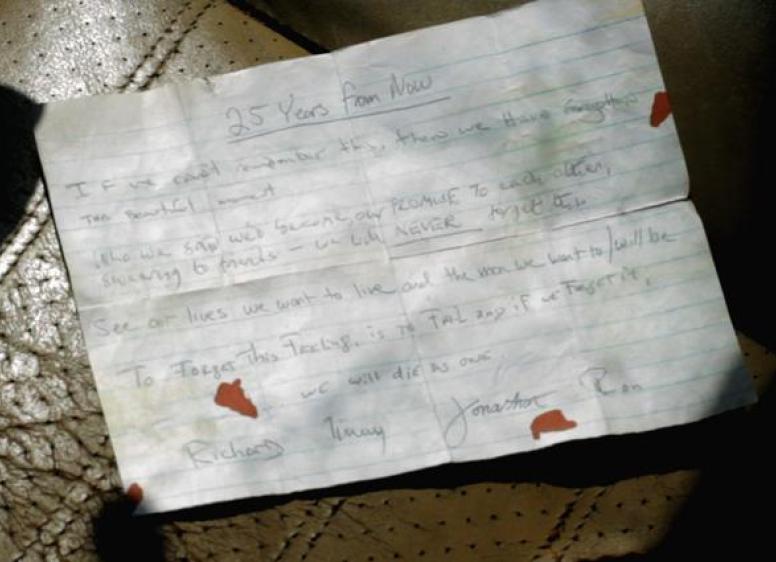 25 Years from Now
If we can't remember this, then we Have forgotten
This beautiful moment
Who we said we'd become, our PROMISE To each other,
swearing to friends – we will NEVER forget this
See our lives we want to live and the men we want to/will be
To Forget This Feeling, is To FAIL and if we Forget it,
we will die as one.
Richard Timmy Jonathon Ron